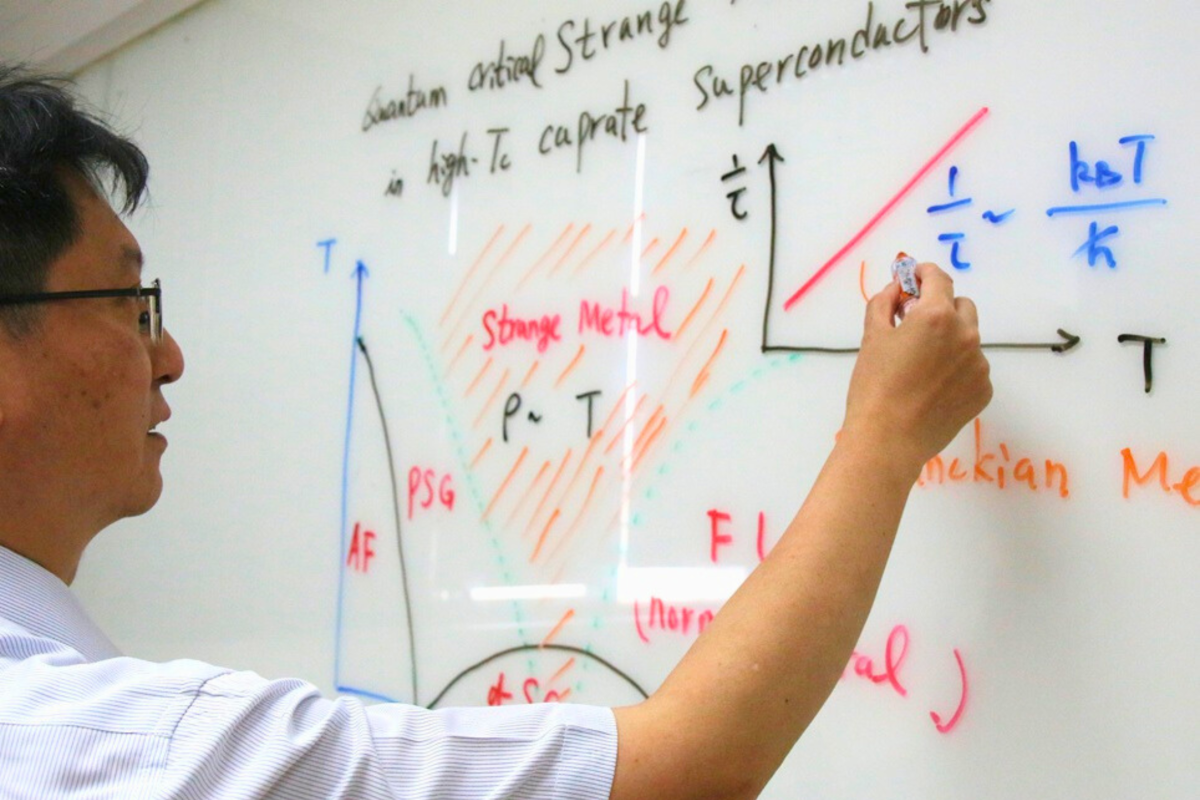 Quantum critical Strange
in high-Tc cuprate Superconductors
1/τ
1/τ ~ kBT/ħ
T
T
Strange Metal
ρ ~ T
PSG
AF
F